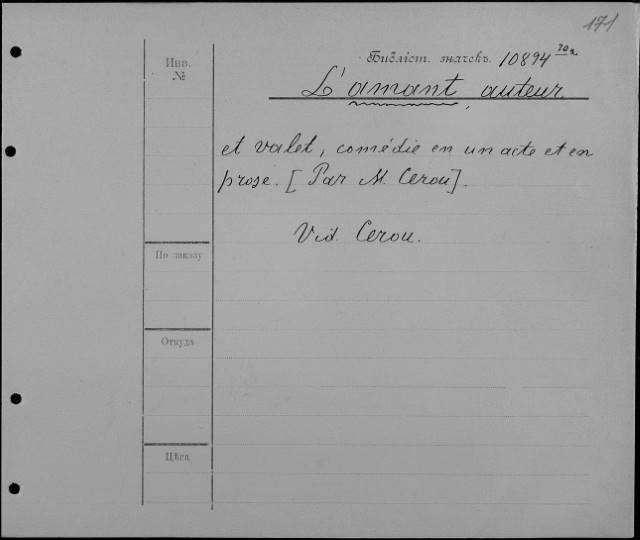 171
Инв.
№
Библіот. значекъ. 10894
L'amant, auteur.
et valet, comédie en un acte et en
prose. [Par M. Cerou].
Vid. Cerou.
По заказу
Откуда
Цѣна